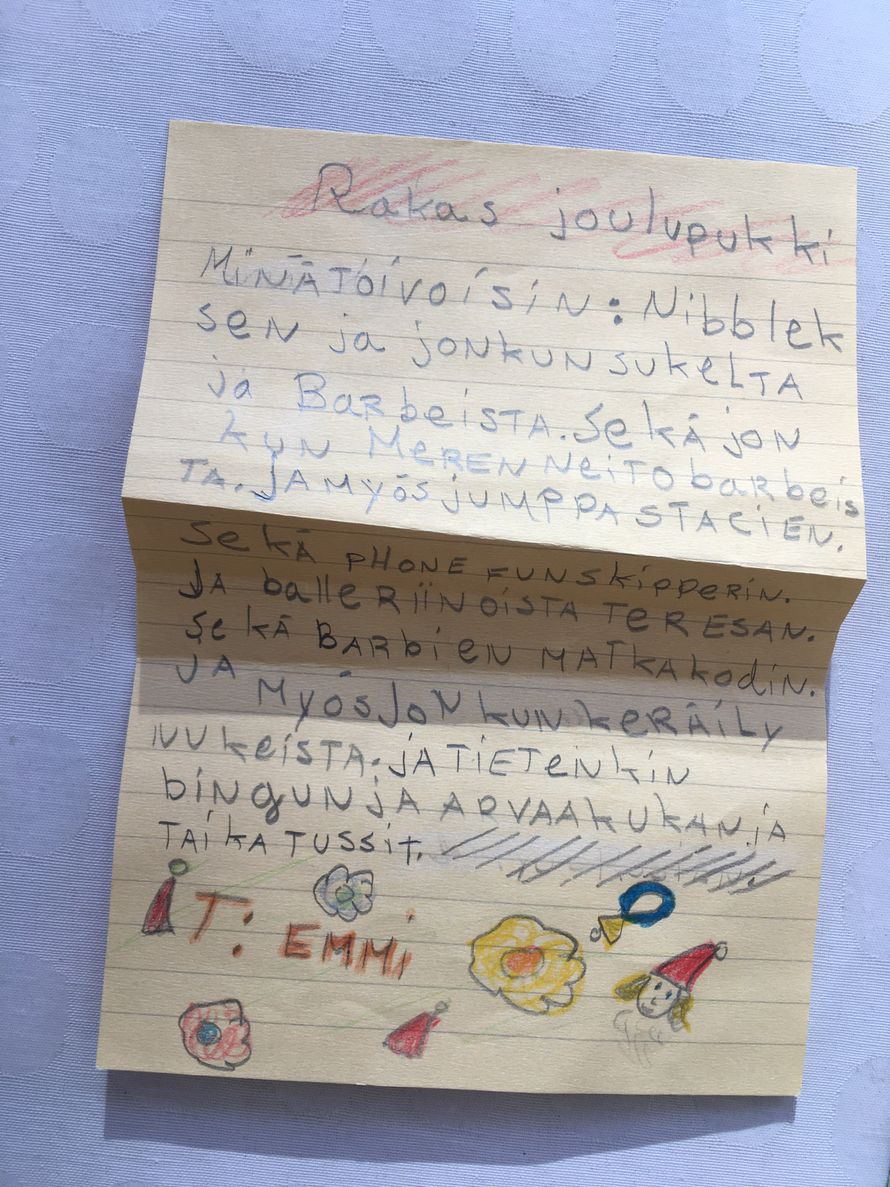 Rakas joulupukki
MiNÄ TOiVOiSiN: Nibblek
seN ja jONKUN sukeLTA
ja BaRbeisTA. Sekä joN
kuN MeRENNeiTObarbeis
TA. JA MYÖS jUMPPA STACiEN.
SeKÄ PHONE FUNSKiPPERiN.
JA balleRiiNOiSTA TeRESAN.
SeKÄ BARbieN MATKAKOdiN.
JA MYÖS JON kuN keRÄiLY
NUkeiSTA. jA TiETeNkiN
biNgUN jA ARVAAKUKAN. jA
TAiKA TUSSiT.
T: EMMi